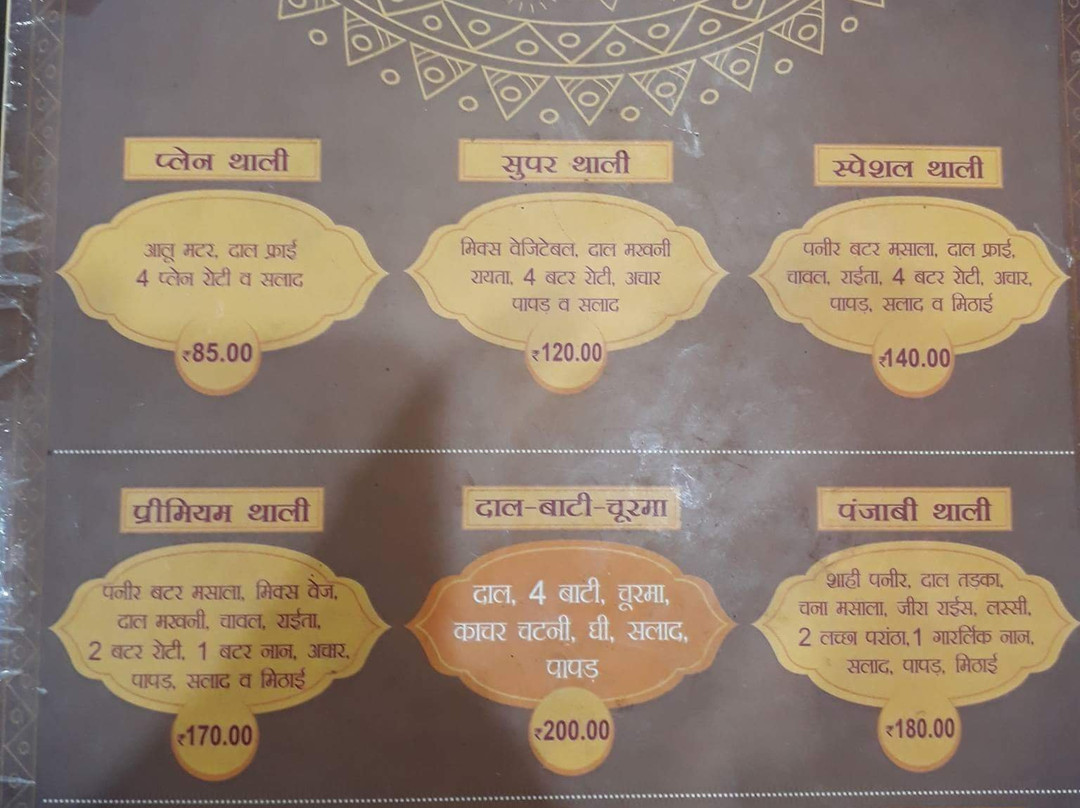 प्लेन थाली
आलू मटर, दाल फ्राई
4 प्लेन रोटी व सलाद
₹85.00
सुपर थाली
मिक्स वेजिटेबल, दाल मखनी
रायता, 4 बटर रोटी, अचार
पापड़ व सलाद
₹120.00
स्पेशल थाली
पनीर बटर मसाला, दाल फ्राई,
चावल, राईता, 4 बटर रोटी, अचार,
पापड़, सलाद व मिठाई
₹140.00
प्रीमियम थाली
पनीर बटर मसाला, मिक्स वेज,
दाल मखनी, चावल, राईता,
2 बटर रोटी, 1 बटर नान, अचार,
पापड़, सलाद व मिठाई
₹170.00
दाल-बाटी-चूरमा
दाल, 4 बाटी, चूरमा,
काचर चटनी, घी, सलाद,
पापड़
₹200.00
पंजाबी थाली
शाही पनीर, दाल तड़का,
चना मसाला, जीरा राईस, लस्सी,
2 लच्छा परांठा,1 गारर्लिक नान,
सलाद, पापड़, मिठाई
₹180.00